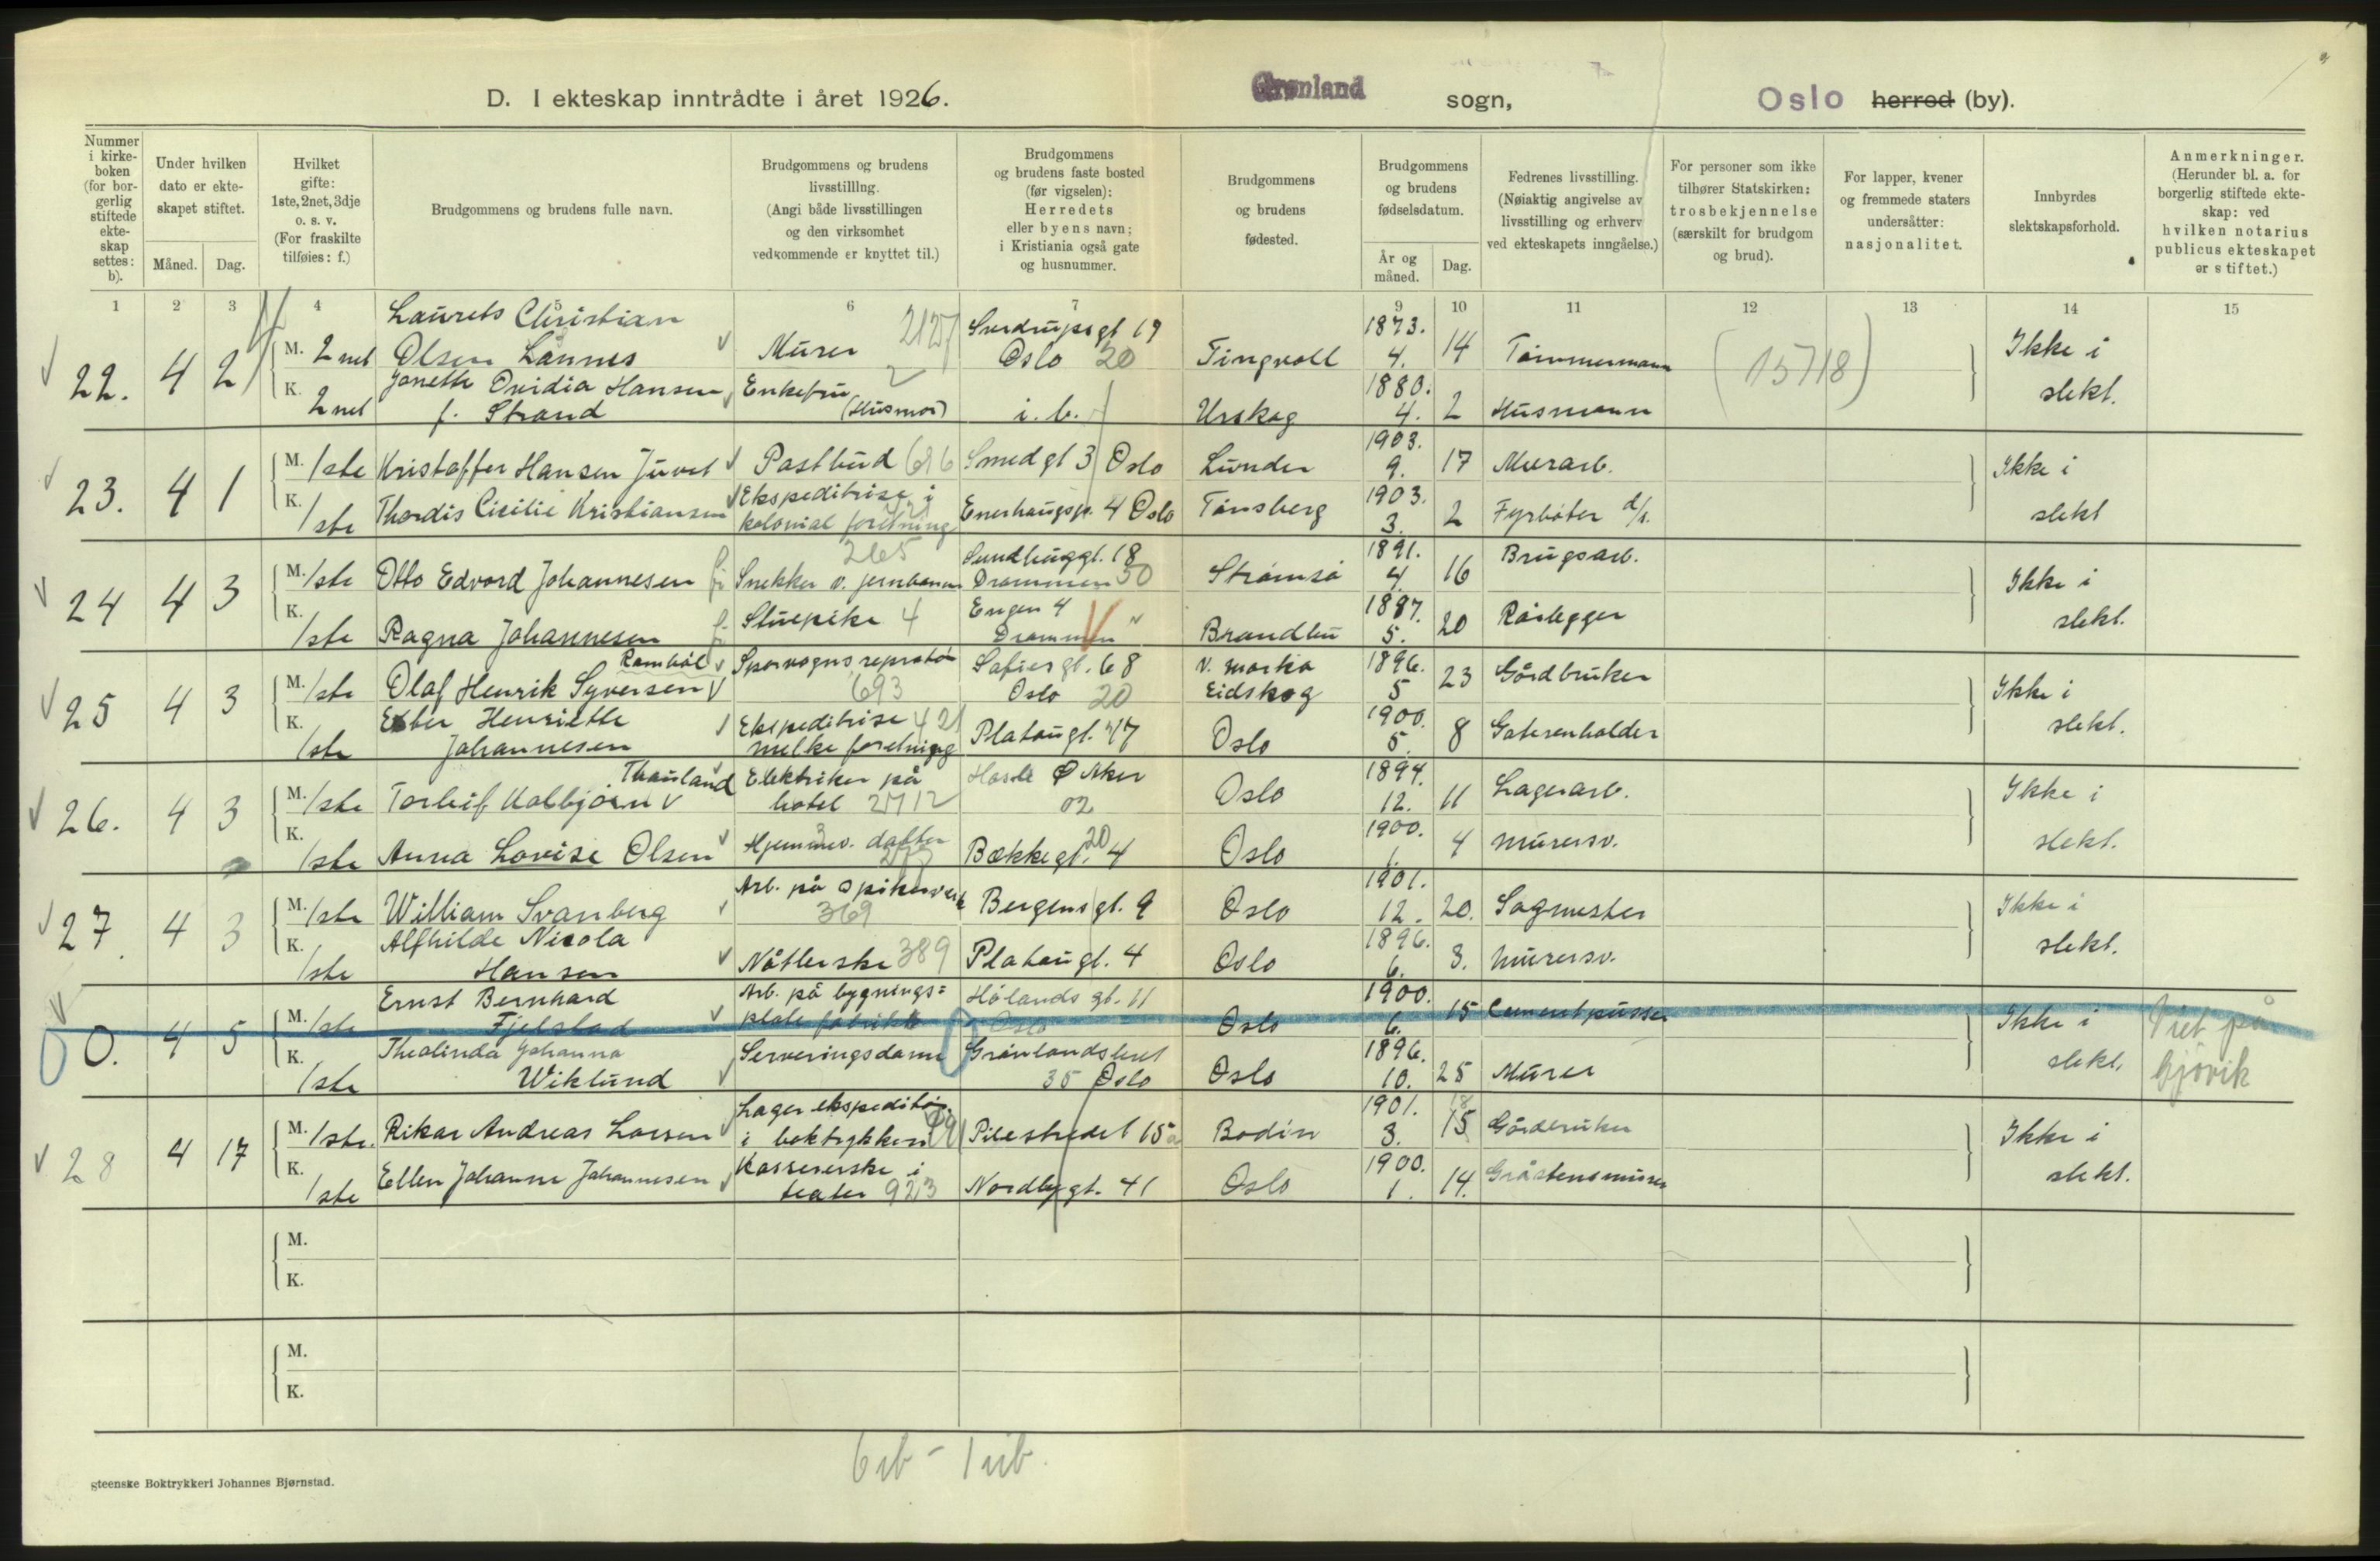 D. I ekteskap inntrådte i året 1926.
Grønland sogn,
Oslo herred (by).
Nummer i kirke-boken (for bor-gerlig stiftede ekte-skap settes: b).
Under hvilken dato er ekte-skapet stiftet.
Måned. Dag.
Hvilket gifte: 1ste, 2net, 3dje o. s. v. (For fraskilte tilføies: f.)
Brudgommens og brudens fulle navn.
Brudgommens og brudens livsstilling. (Angi både livsstillingen og den virksomhet vedkommende er knyttet til.)
Brudgommens og brudens faste bosted (før vigselen): Herredets eller byens navn; i Kristiania også gate og husnummer.
Brudgommens og brudens fødested.
Brudgommens og brudens fødselsdatum.
År og måned. Dag.
Fedrenes livsstilling. (Nøiaktig angivelse av livsstilling og erhverv ved ekteskapets inngåelse.)
For personer som ikke tilhører Statskirken: trosbekjennelse (særskilt for brudgom og brud).
For lapper, kvener og fremmede staters undersåtter: nasjonalitet.
Innbyrdes slektskapsforhold.
Anmerkninger. (Herunder bl. a. for borgerlig stiftede ekte-skap: ved hvilken notarius publicus ekteskapet er stiftet.)
1 2 3 4 5 6 7 9 10 11 12 13 14 15
22. 4 2 M. 2net Laurets Christian Olsen Lannes Murer 2127 Sverdrupsgt 19 Oslo 20 Tingvoll 1873. 4. 14 Tømmermann (15718) Ikke i slekt.
K. 2net Janette Ovidia Hansen f. Strand Enkefru (Husmor) i. b. Urskog 1880. 4. 2 Husmann
23. 4 1 M. 1ste Kristoffer Hansen Juvet Postbud 686 Smedgt 3 Oslo Lunder 1903. 9. 17 Murarb. Ikke i slekt
K. 1ste Thordis Cicilie Kristiansen Ekspeditrise i kolonial foretning Enerhaugsg. 4 Oslo Tønsberg 1903. 3. 2 Fyrbøter d/s.
24 4 3 M. 1ste Otto Edvard Johannesen Snekker v. jernbanen 265 Sundhuggt. 18 Drammen 50 Strømsø 1891. 4. 16 Brugsarb. Ikke i slekt.
K. 1ste Ragna Johannesen Stuepike 4 Engen 4 Drammen Brandbu 1887. 5. 20 Rørlegger
25 4 3 M. 1ste Olaf Henrik Syversen Ramböl Sporvognsreparatør 693 Sofiesgt. 68 Oslo 20 V. Marka Eidskog 1896. 5 23 Gårdbruker Ikke i slekt.
K. 1ste Ester Henriette Johannesen Ekspeditrise 421 melke foretning Platougt. 7 Oslo 1900. 5. 8 Gaterenholder
26. 4 3 M. 1ste Torleif Kolbjørn Thauland Elektriker på hotel 2712 Hasle Ø Aker 02 Oslo 1894. 12. 11 Lagerarb. Ikke i slekt.
K. 1ste Anna Lovise Olsen Hjemmev. datter Bækkegt. 4 20 Oslo 1900. 1. 4 Murersv.
27 4 3 M. 1ste William Svanberg Arb. på spikerverk 369 Bergensgt. 9 Oslo 1901. 12. 20. Sagmester Ikke i slekt.
K. 1ste Alfhilde Nicola Hansen Nåtlerske 389 Platougt. 4 Oslo 1896. 6. 3. Murersv.
0. 4 5 M. 1ste Ernst Bernhard Fjelstad Arb. på bygnings= plate fabrikk Hølands gt. 11 Oslo Oslo 1900. 6. 15 Cementpusser Ikke i slekt. Viet på Gjøvik
K. 1ste Thealinda Johanna Wiklund Serveringsdame Grønlandsleret 35 Oslo Oslo 1896. 10. 25 Murer
28 4 17 M. 1ste. Rikar Andreas Larsen Lager ekspeditør i boktrykkeri Pilestredet 15 Bodin 1901. 3. 15 Gårdbruker Ikke i slekt.
K. 1ste Ellen Johanne Johannesen Kassererske i teater 923 Nordbygt. 41 Oslo 1900. 1. 14. Gråstensmurer
M.
K.
M.
K.
6 ib - 1 uib.
gteenske Boktrykkeri Johannes Bjørnstad.